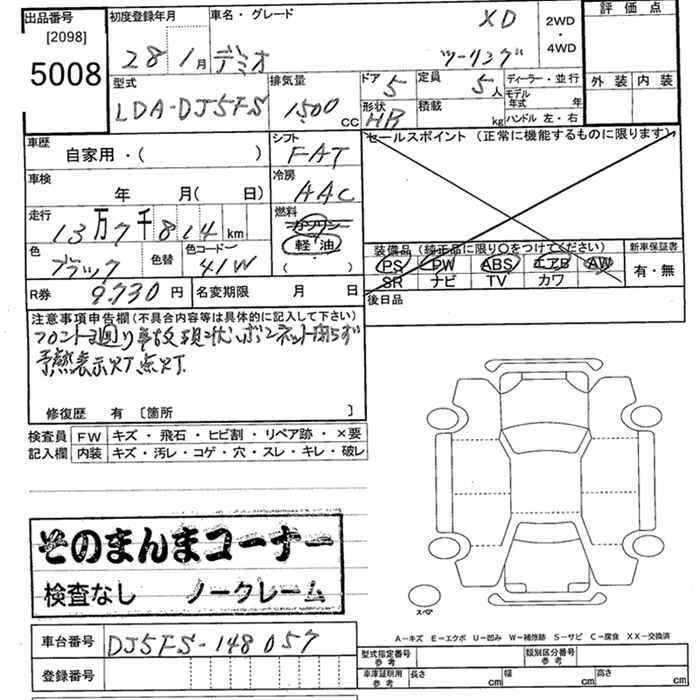 出品番号
[2098]
5008
初度登録年月
28 1月
車名・グレード
デミオ
XD
ツーリング
2WD
・
4WD
評価点
外装 内装
型式
LDA-DJ5FS
排気量
1500 cc
ドア 5
定員 5人
ディーラー・並行
モデル年式 年
形状 HB
積載 kg
ハンドル 左・右
車歴
自家用・( )
シフト
FAT
セールスポイント (正常に機能するものに限ります)
車検
年 月( 日)
冷房
AAC
走行
13万7千814km
燃料
ガソリン
軽油
( )
色
ブラック
色替
色コード
41W
装備品 (純正品に限り〇をつけてください)
PS PW ABS エアB AW
SR ナビ TV カワ
新車保証書
有・無
R券
9,730円
名変期限 月 日
後日品
注意事項申告欄(不具合内容等は具体的に記入して下さい)
フロント廻り事故現状 ボンネット閉らず
予熱表示灯点灯
修復歴 有 [箇所 ]
検査員
記入欄
FW キズ・飛石・ヒビ割・リペア跡・×要
内装 キズ・汚レ・コゲ・穴・スレ・キレ・破レ
そのまんまコーナー
検査なし ノークレーム
スペア
A-キズ E-エクボ U-凹み W-補修跡 S-サビ C-腐食 XX-交換済
車台番号
DJ5FS-148057
登録番号
型式指定番号
参考
類別区分番号
参考
車庫証明用
参考
長さ cm 幅 cm 高さ cm